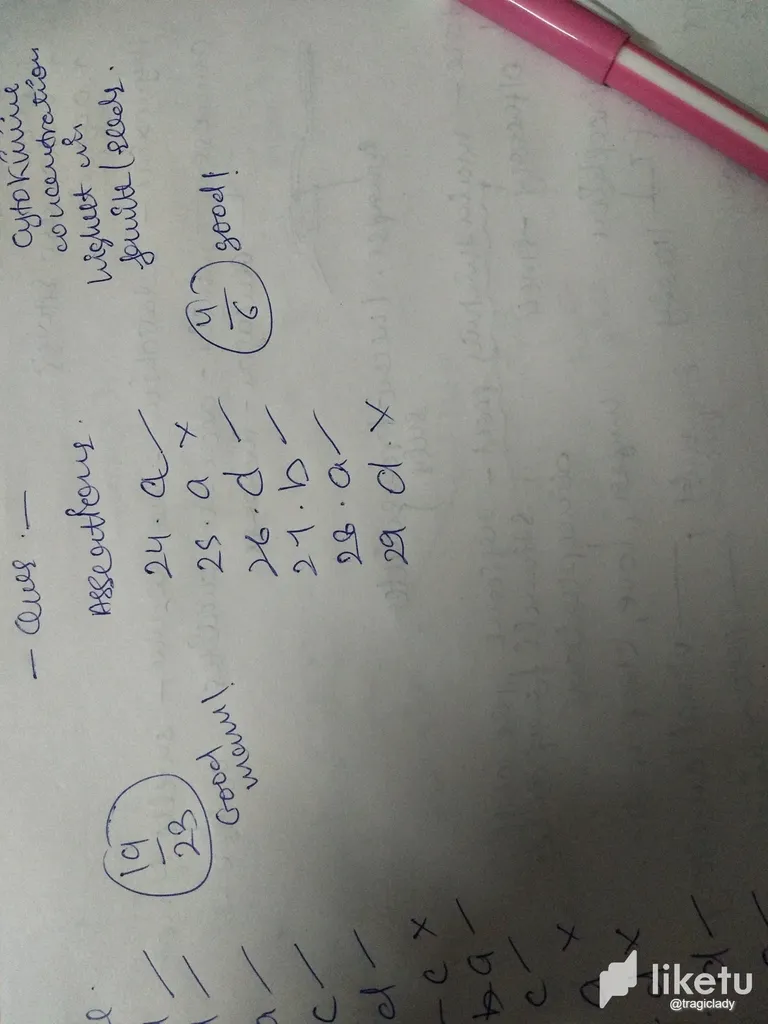 — Ques. —
Assertions.
24. a
25. a ×
26. d
27. b
28. a
29 d. ×
4/6 good!
Cytokinine
concentration
highest in
fruits/seeds.
19/23
Good
d
a
c
d
c ×
a
c
×
×
d
liketu
@tragiclady